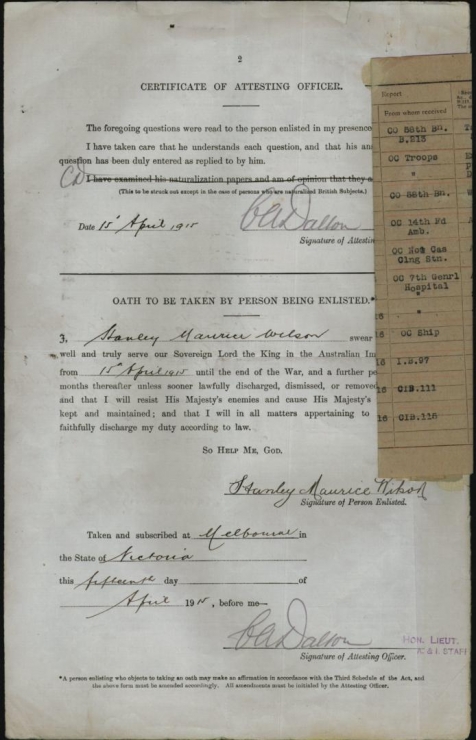 2
CERTIFICATE OF ATTESTING OFFICER.
The foregoing questions were read to the person enlisted in my presence
I have taken care that he understands each question, and that his an
question has been duly entered as replied to by him.
CD I have examined his naturalization papers and am of opinion that they a
(This to be struck out except in the case of persons who are naturalized British Subjects.)
Date 15th April, 1915 C A Dalton
Signature of Attestin
OATH TO BE TAKEN BY PERSON BEING ENLISTED.*
I, Stanley Maurice Wilson swear
well and truly serve our Sovereign Lord the King in the Australian Im
from 15th April 1915 until the end of the War, and a further pe
months thereafter unless sooner lawfully discharged, dismissed, or removed
and that I will resist His Majesty's enemies and cause His Majesty's
kept and maintained; and that I will in all matters appertaining to
faithfully discharge my duty according to law.
SO HELP ME, GOD.
Stanley Maurice Wilson
Signature of Person Enlisted.
Taken and subscribed at Melbourne in
the State of Victoria
this fifteenth day of
April 1915, before me—
C A Dalton
Signature of Attesting Officer.
HON. LIEUT.
A & I. STAFF
*A person enlisting who objects to taking an oath may make an affirmation in accordance with the Third Schedule of the Act, and
the above form must be amended accordingly. All amendments must be initialed by the Attesting Officer.
Report
From whom received
CO 58th Bn.
B.213
OC Troops
"
CO 58th Bn.
OC 14th Fd
Amb.
OC No2 Cas
Clng Stn.
OC 7th Genrl
Hospital
"
"
16 OC Ship
16 I.B.97
16 CIB.111
16 CIB.116